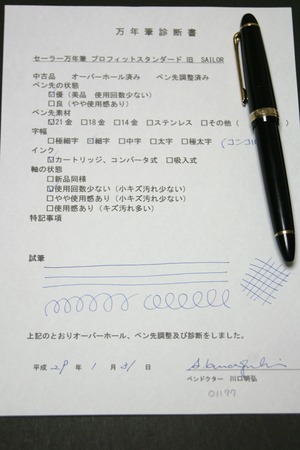 万年筆診断書
セーラー万年筆 プロフィットスタンダード 旧 SAILOR
中古品 オーバーホール済み ペン先調整済み
ペン先の状態
☑優(美品 使用回数少ない)
□良(やや使用感あり)
ペン先素材
☑21金 □18金 □14金 □ステンレス □その他(
字幅
□極細字 ☑細字 □中字 □太字 □極太字
インク
☑カートリッジ、コンバータ式 □吸入式
軸の状態
□新品同様
☑使用回数少ない(小キズ汚れ少ない)
□やや使用感あり(小キズ汚れ少ない)
□使用感あり(キズ汚れ多い)
特記事項
試筆
上記のとおりオーバーホール、ペン先調整及び診断をしました。
平成 29 年 1 月 31 日
ペンドクター 川口明弘
01177